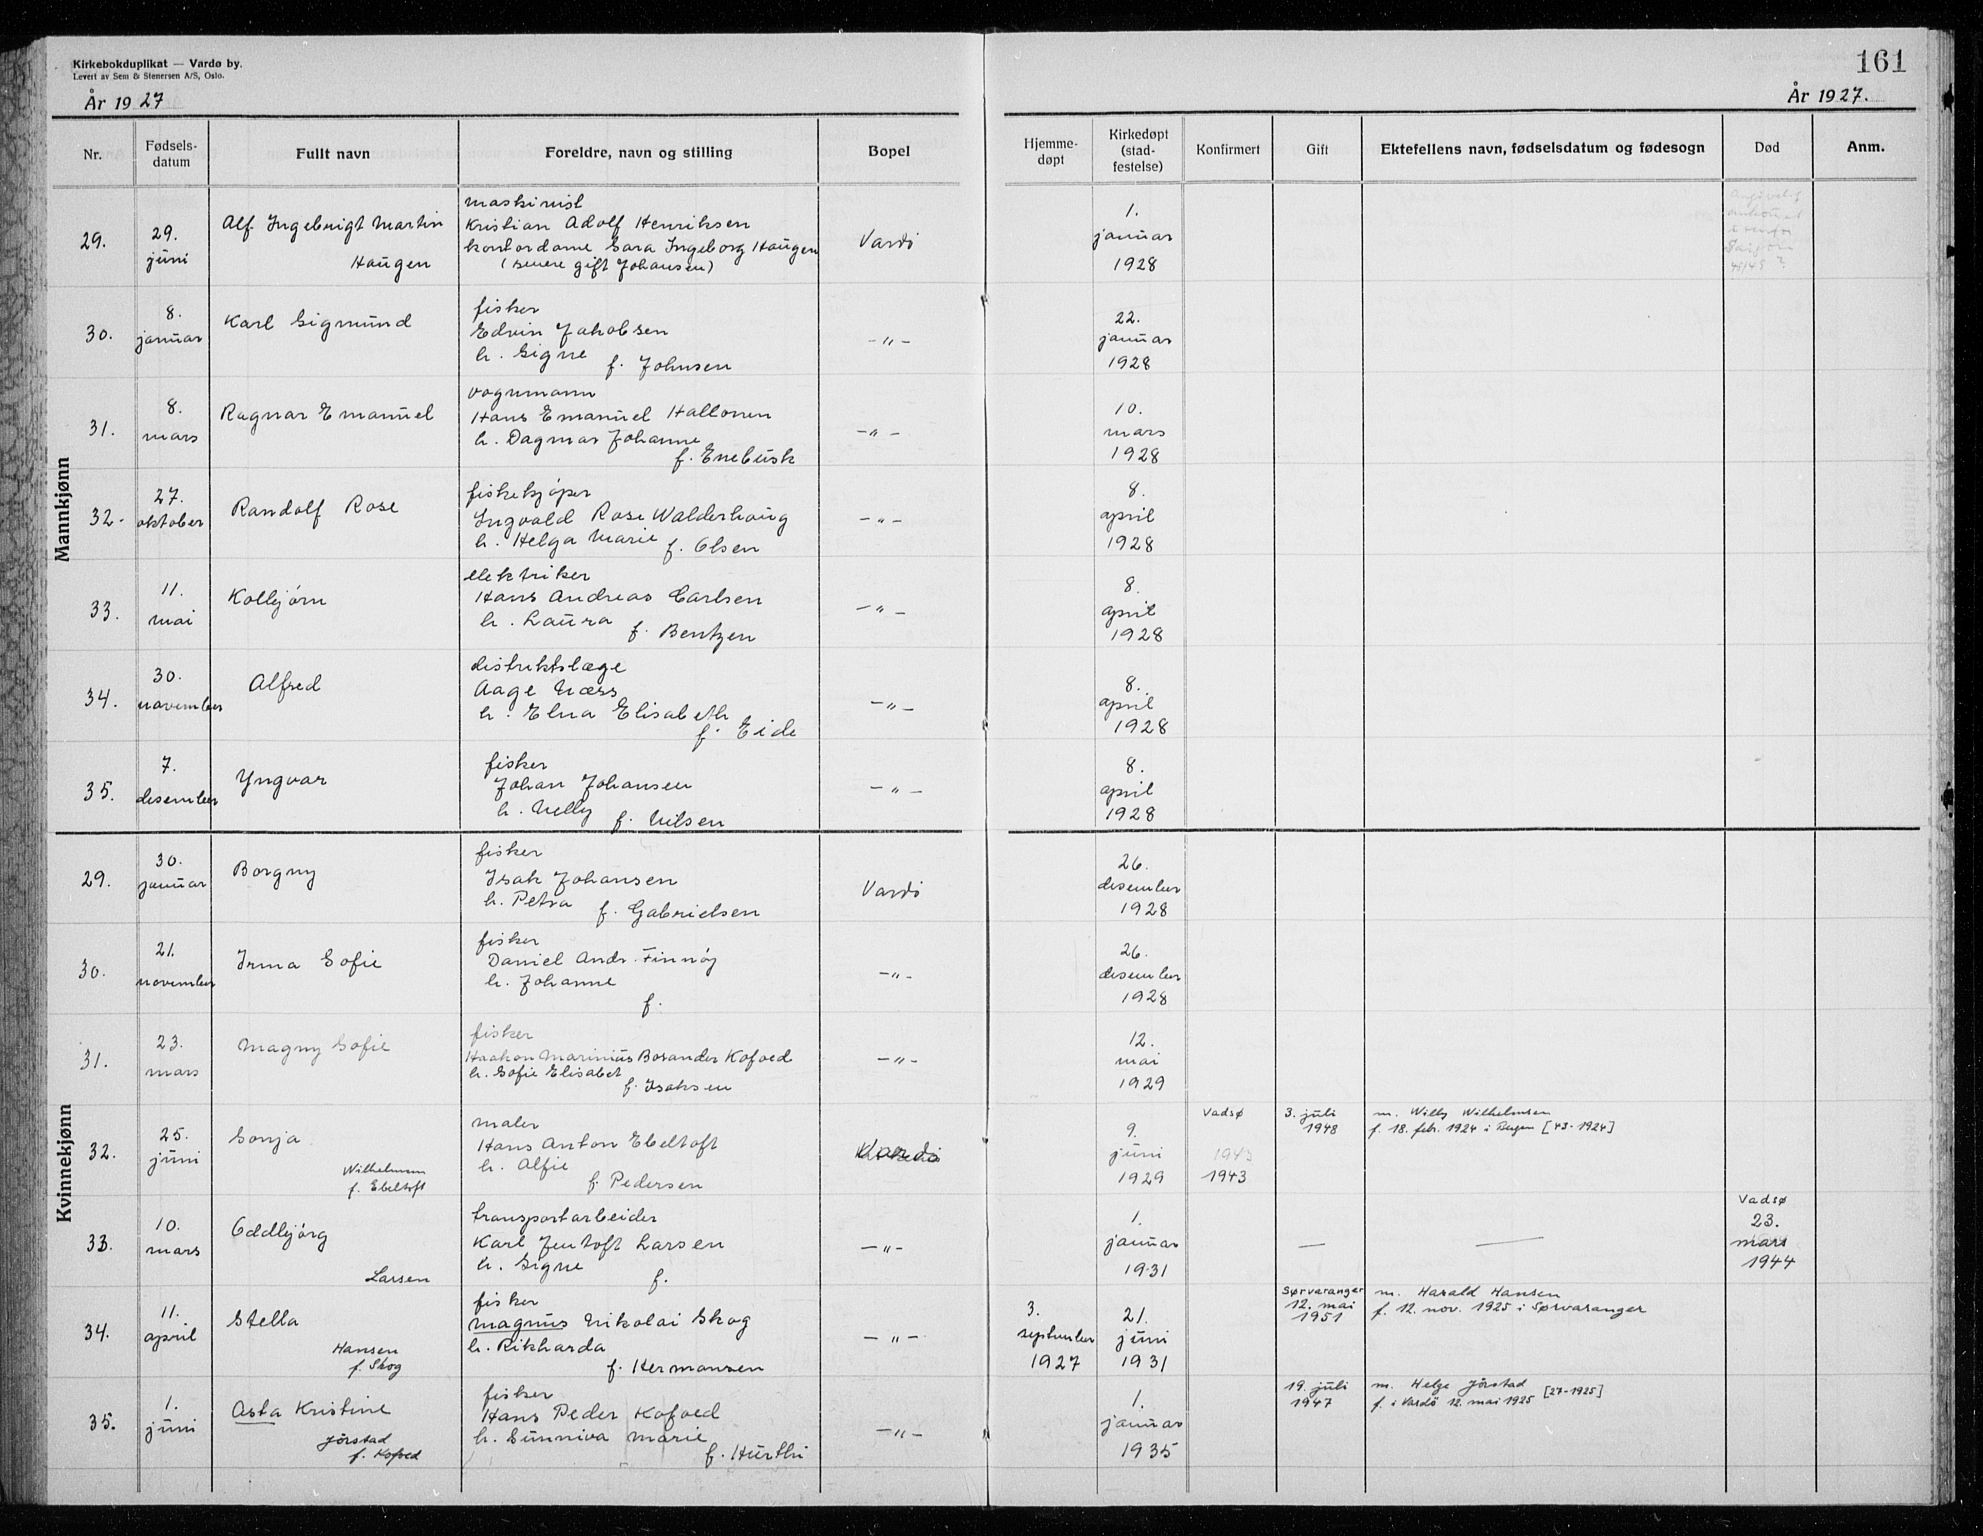 Kirkebokduplikat — Vardø by.
Levert av Sem & Stenersen A/S, Oslo.
År 1927
161
År 1927.
Nr.
Fødsels-
datum
Fullt navn
Foreldre, navn og stilling
Bopel
Hjemme-
døpt
Kirkedøpt
(stad-
festelse)
Konfirmert
Gift
Ektefellens navn, fødselsdatum og fødesogn
Død
Anm.
Mannkjønn
29.
29.
juni
Alf Ingebrigt Martin
Haugen
maskinist
Kristian Adolf Henriksen
kontordame Sara Ingeborg Haugen
(senere gift Johansen)
Vardö
1.
januar
1928
30.
8.
januar
Karl Sigmund
fisker
Edvin Jakobsen
h. Signe f. Johnsen
—„—
22.
januar
1928
31.
8.
mars
Ragnar Emanuel
vognmann
Hans Emanuel Hallonen
h. Dagmar Johanne
f. Enebusk
—„—
10.
mars
1928
32.
27.
oktober
Randolf Rose
fiskekjöper
Ingvald Rose Walderhaug
h. Helga Marie f. Olsen
—„—
8.
april
1928
33.
11.
mai
Kolbjörn
elektriker
Hans Andreas Carlsen
h. Laura f. Bentzen
—„—
8.
april
1928
34.
30.
november
Alfred
distriktslæge
Aage Næss
h. Elna Elisabeth
f. Eide
—„—
8.
april
1928
35.
7.
desember
Yngvar
fisker
Johan Johansen
h. Nelly f. Nilsen
—„—
8.
april
1928
Kvinnekjønn
29.
30.
januar
Borgny
fisker
Isak Johansen
h. Petra f. Gabrielsen
Vardö
26.
desember
1928
30.
21.
november
Irma Sofie
fisker
Daniel Andr. Finnöy
h. Johanne
f.
—„—
26.
desember
1928
31.
23.
mars
Magny Sofie
fisker
Haakon Marinius Bosander Kofoed
h. Sofie Elisabet
f. Isaksen
—„—
12.
mai
1929
32.
25.
juni
Sonja
Wilhelmsen
f. Ebeltoft
maler
Hans Anton Ebeltoft
h. Alfie
f. Pedersen
Vardö
9.
juni
1929
Vadsø
1943
1943
3. juli
1948
m. Willy Wilhelmsen
f. 18. febr. 1924 i Bergen [43-1924]
33.
10.
mars
Oddbjörg
Larsen
transportarbeider
Karl Jentoft Larsen
h. Signe
f.
—„—
1.
januar
1931
—
—
Vadsø
23.
mars
1944
34.
11.
april
Stella
Hansen
f. Skog
fisker
Magnus Nikolai Skog
h. Rikharda
f. Hermansen
—„—
3.
september
1927
21.
juni
1931
Sørvaranger
12. mai
1951
m. Harald Hansen
f. 12. nov. 1925 i Sørvaranger
35.
1.
juni
Asta Kristine
Jörstad
f. Kofoed
fisker
Hans Peder Kofoed
h. Sunniva Marie
f. Hurthi
—„—
1.
januar
1935
19. juli
1947
m. Helge Jörstad
f. i Vardö 12. mai 1925 [27-1925]